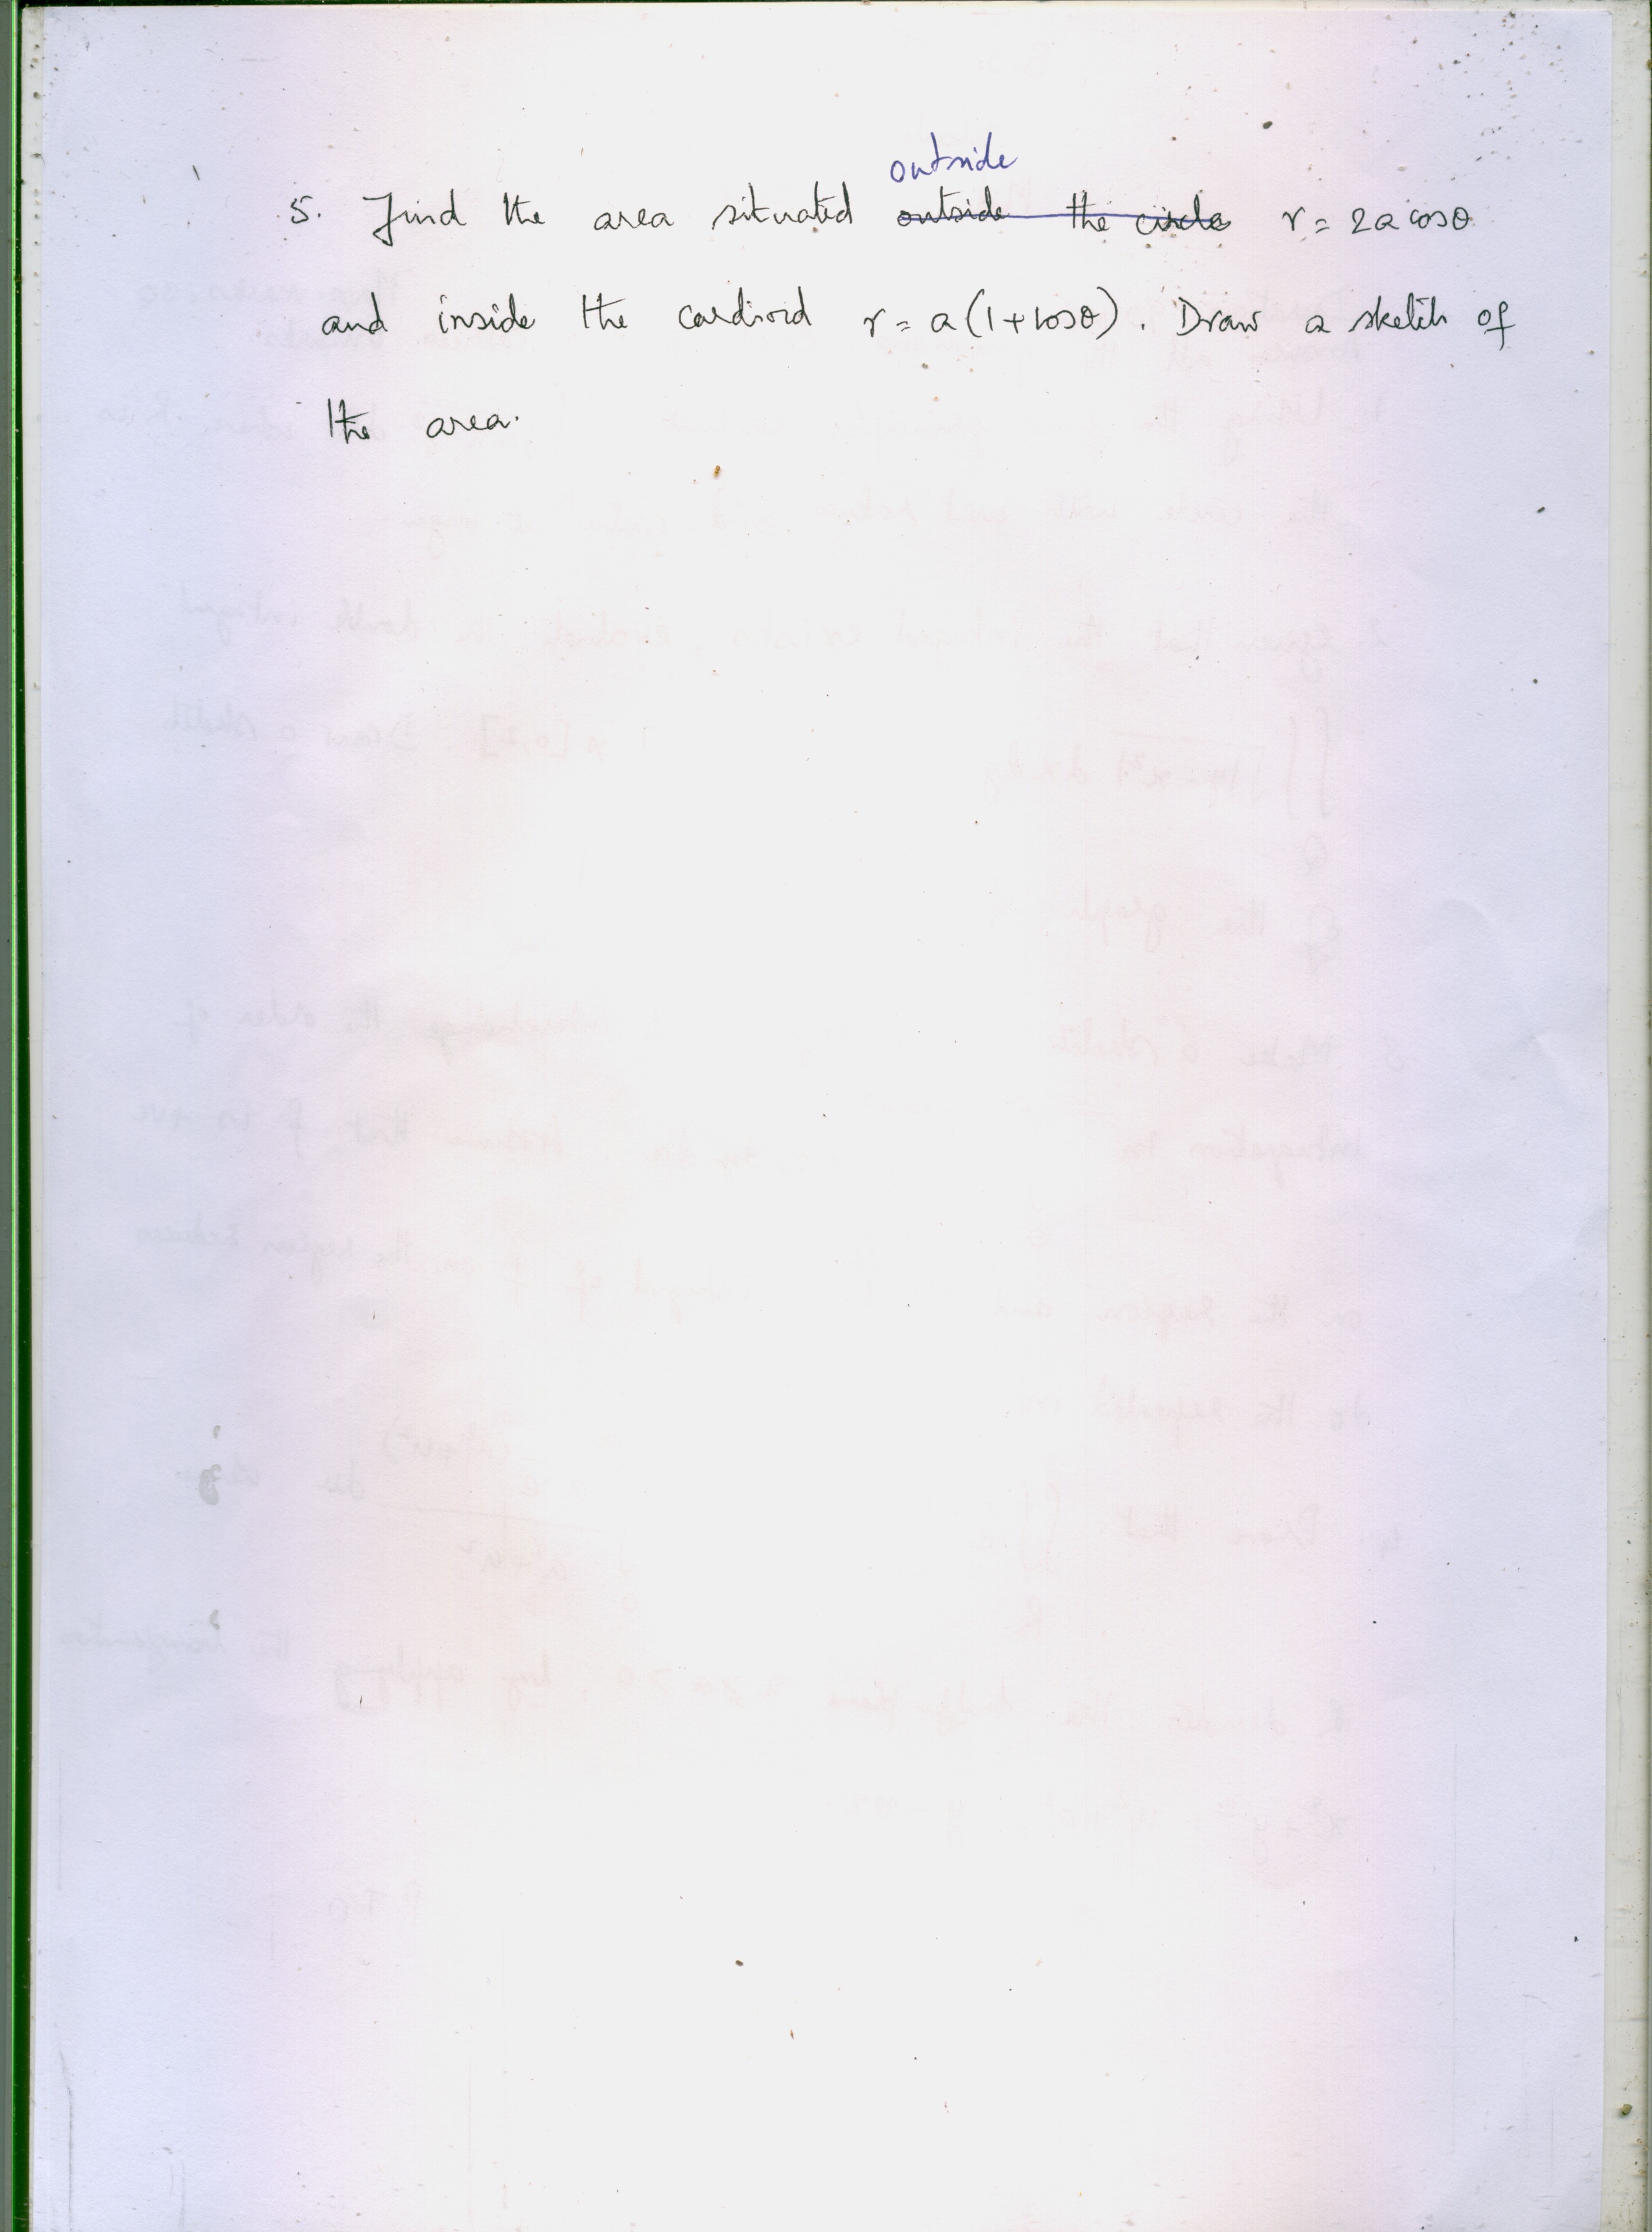 outside
5. Find the area situated outside the circle r = 2a cosθ
and inside the cardioid r = a(1+cosθ). Draw a sketch of
the area.